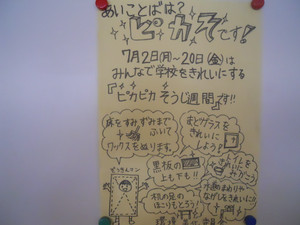 あいことばは？
ピカそです！
7月2日(月)～20日(金)は
みんなで学校をきれいにする
『ピカピカ そうじ週間』です!!
床をすみずみまで
ふいて
ワックスをぬります。
まどガラスを
きれいに
しよう？
黒板の
上も下も!!
ぞうきんマン
トイレを
きれいにみがこう
水道まわりや
ながしをきれいに
机の足の
ほこりもとろう！
環境